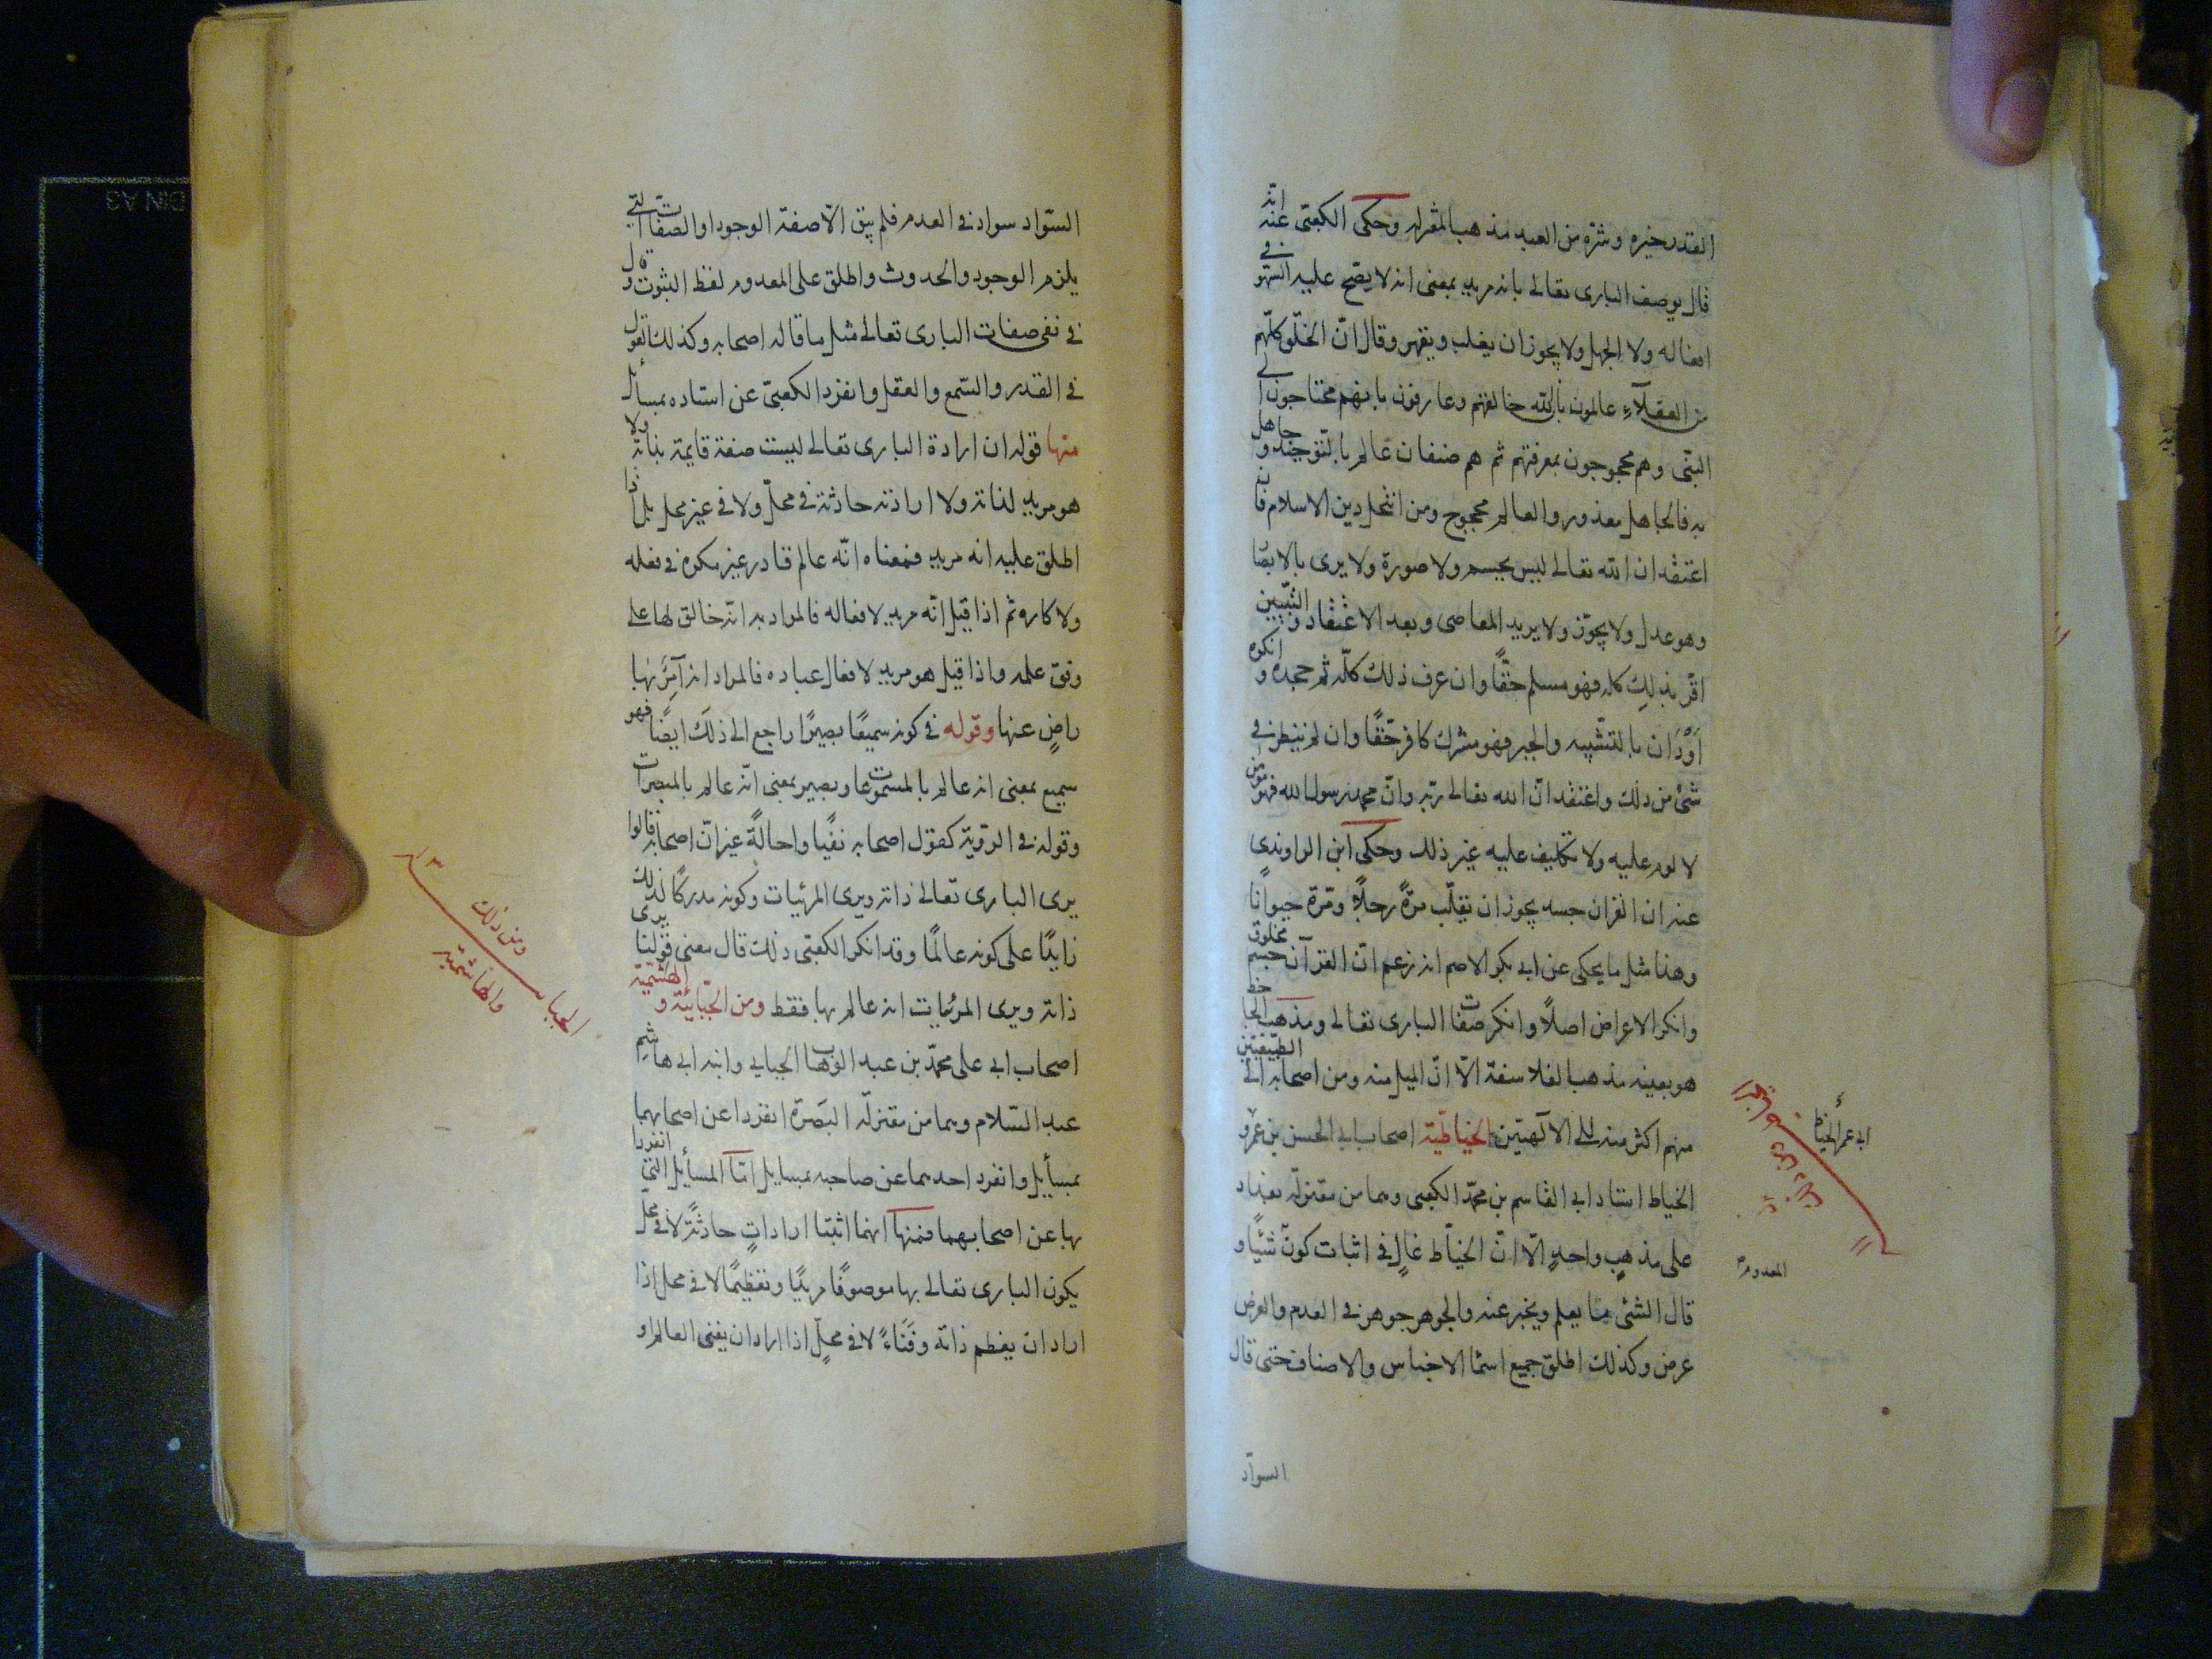 القدر خيره وشره من العبد مذهب المعتزله وحكى الكعبى عنه انه
قال يوصف البارى تعالى بانه مريد بمعنى انه لا يصح عليه السهو فى
افعاله ولا الجهل ولا يجوز ان يغلب ويقهر وقال انّ الخلق كلّهم
من العقلآءِ عالمون بانّ الله خالقهم وعارفون بانهم محتاجون الى
النبّى وهم محجوجون بمعرفتهم ثم هم صنفان عالم بالتّوحيد وجاهل
به فالجاهل معذور والعالم محجوج ومن انتحل دين الاسلام فان
اعتقد ان الله تعالى ليس بجسم ولا صورة ولا يرى بالابصا
وهو عدل ولا يجوّز ولا يريد المعاصى وبعد الاعتقاد والتبيين
اقرّ بذلِك كله فهو مسلم حقًّا وان عرف ذلك كلّه ثم جحده وانكره
اَوْدَان بالتشّبيه والجبر فهو مشرك كافر حقًّا وان لم ينظر فى
شئ من ذلك واعتقد انّ الله تعالى ربّه وانّ محمد رسول الله فهو مؤمن
لا لوم عليه ولا تكليف عليه غير ذلك وحكى ابن الراوندى
عنه ان القران جسد يجوز ان يقلّب مرّةً رجلاً ومّرة حيوانًا
وهذا مثل ما يحكى عن ابى بكر الاصم انه زعم انّ القرآن جسم مخلوق
وانكر الاعراض اصلاً وانكر صفات البارى تعالى ومذهب الجاحظ
هو بعينه مذهب الفلاسفة الّا انّ الميل منه ومن اصحابه الى الطبيعيّين
منهم اكثر منه الى الآلهيّين الخياطيّة اصحاب ابى الحسن بن عمرو
الخياط استاد ابى القاسم بن محمّد الكعبى وهما من معتزلة بغداد
على مذهبٍ واحدٍ الّا انّ الخيّاط غالٍ فى اثبات كون شيئًا و
قال الشئ ما يعلم ويخبر عنه والجوهر جوهر فى العدم والعرض
عرض وكذلك اطلق جميع اسما الاجناس والاصناف حتى قال
السواد
ابى عمر الخياط
المعدوم
السّواد سواد فى العدم فلم يبق الّا صفة الوجود او الصفات التى
يلزم الوجود والحدوث واطلق على المعدوم لفظ الثبوت وقال
فى نفى صفات البارى تعالى مثل ما قاله اصحابه وكذلك القول
فى القدر والسّمع والعقل وانفرد الكعبىّ عن استاده بمسأيل
منها قوله ان ارادة البارى تعالى ليست صفة قايمة بذاته ولا
هو مريد لذاته ولا ارادته حادثة فى محلّ ولا فى غير محل بل اذا
اطلق عليه انه مريد فمعناه انّه عالم قادر غير مكره فى فعله
ولا كاره ثم اذا قيل انّه مريد لافعاله فالمراد به انّه خالق لها على
وفق علمه واذا قيل هو مريد لافعال عباده فالمراد انه آمِرٌ بها
راضٍ عنها وقوله فى كونه سميعًا بصيرًا راجع الى ذلَك ايضًا فهو
سميع بمعنى انه عالم بالمسموعات وبصير بمعنى انّه عالم بالمبصرات
وقوله فى الروّية كقول اصحابه نفيًا واحالةً غير انّ اصحابه قالوا
يرى البارى تعالى ذاته ويرى المرئيات وكونه مدركًا لذلك
زايدًا على كونه عالمًا وقد انكر الكعبّى ذلك قال معنى قولنا يرى
ذاته ويرى المرئيات انه عالم بها فقط ومن الجّبايئة والهشميّة
اصحاب ابى على محمّد بن عبد الوهاب الجبايى وابنه ابى هاشم
عبد السّلام وهما من معتزلة البَصرَة انفردا عن اصحابهما
بمسأيل وانفرد احدهما عن صاحبه بمسايل امّا المسأيل التى انفردا
بها عن اصحابهما فمنها انهما اثبتا اراداتٍ حادثةً لا فى محلّ
يكون البارى تعالى بها موصوفًا مريدًا وتعظيمًا لا فى محل اذا
اراد ان يعظم ذاته وفَنَاءً لا فى محلٍّ اذا اراد ان يفنى العالم و
ومن ذلك
الجبايـ
والهاشمية